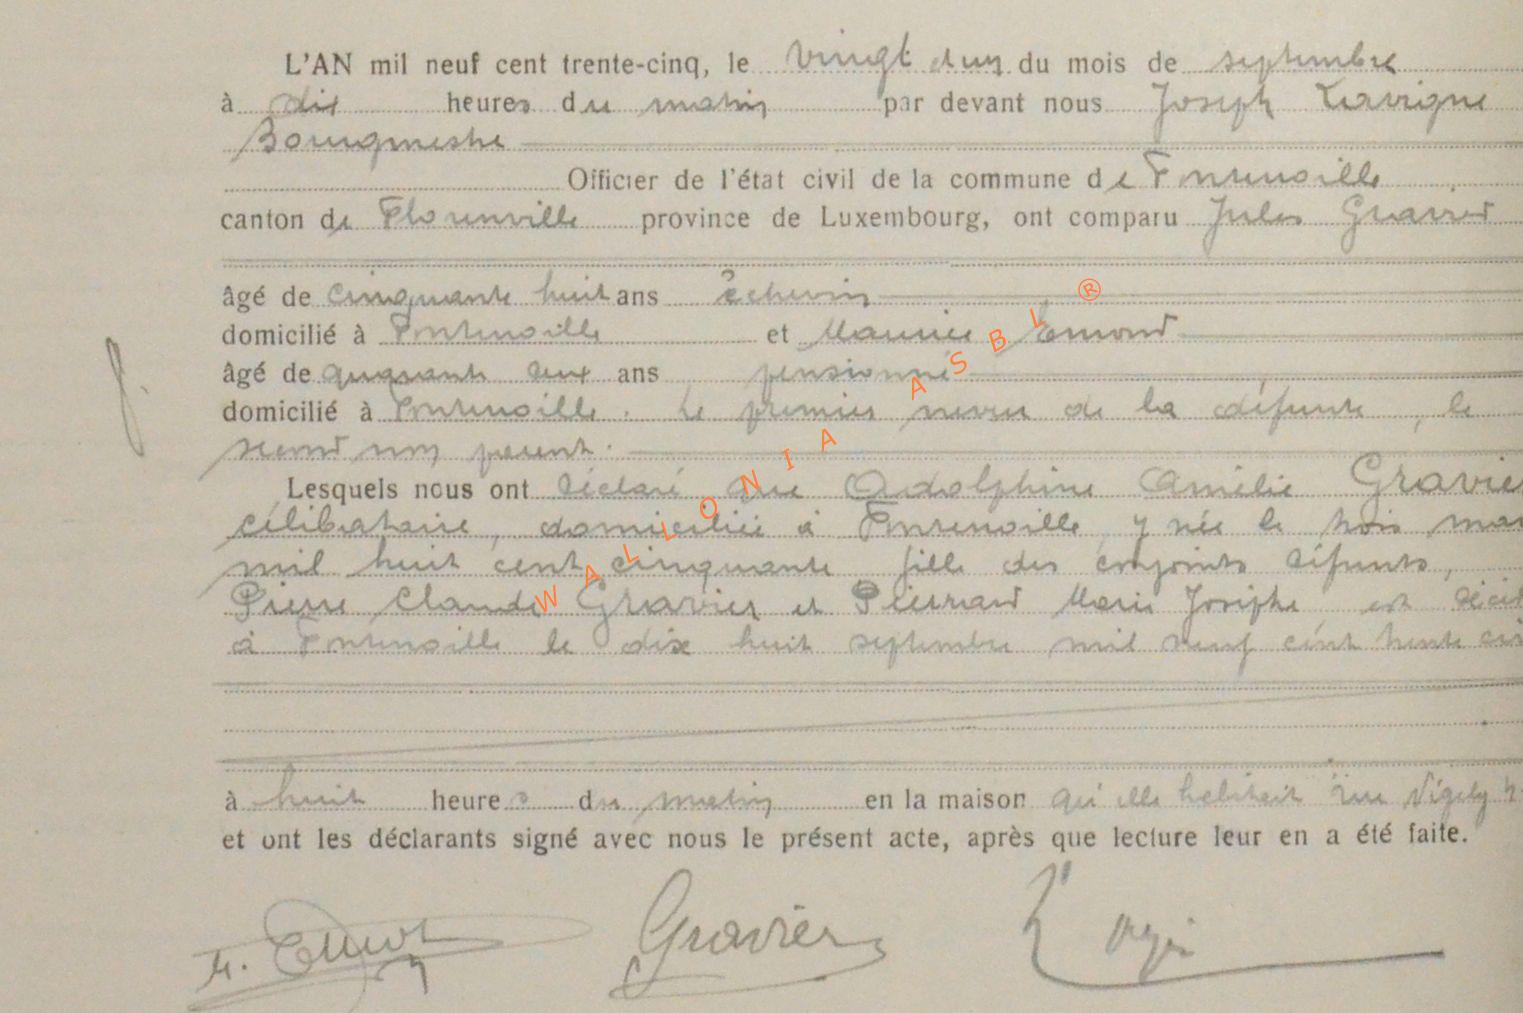 L'AN mil neuf cent trente-cinq, le vingt et un du mois de septembre
à dix heures du matin par devant nous Joseph Lavigne
Bourgmestre
Officier de l'état civil de la commune de Fontenoille
canton de Florenville province de Luxembourg, ont comparu Jules Gravier
âgé de cinquante huit ans échevin
domicilié à Fontenoille et Maurice Emond
âgé de quarante deux ans pensionné
domicilié à Fontenoille. Le premier neveu de la défunte, le
second non parent.
Lesquels nous ont déclaré que Adolphine Amélie Gravier
célibataire, domiciliée à Fontenoille, y née le trois
mil huit cent cinquante fille des conjoints défunts,
Pierre Claude Gravier et Marie Josèphe est
à Fontenoille le dix huit septembre mil neuf cent trente
à huit heures du matin en la maison qu'elle habitait rue
et ont les déclarants signé avec nous le présent acte, après que lecture leur en a été faite.
M. Emond Gravier
WALLONIA ASBL ®